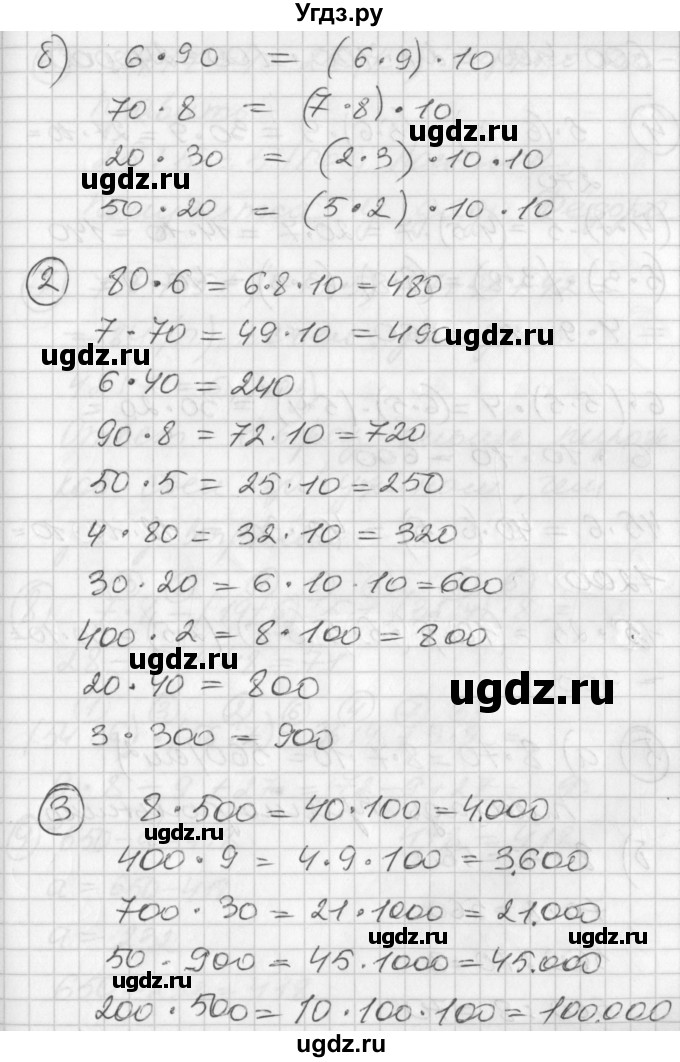 Угдз.ру
б) 6 · 90 = (6 · 9) · 10
70 · 8 = (7 · 8) · 10
ugdz.ru
20 · 30 = (2 · 3) · 10 · 10
ugdz.ru
50 · 20 = (5 · 2) · 10 · 10
2 80 · 6 = 6 · 8 · 10 = 480
7 · 70 = 49 · 10 = 490
ugdz.ru
ugdz.ru
6 · 40 = 240
90 · 8 = 72 · 10 = 720
50 · 5 = 25 · 10 = 250
4 · 80 = 32 · 10 = 320
30 · 20 = 6 · 10 · 10 = 600
400 · 2 = 8 · 100 = 800
ugdz.ru
20 · 40 = 800
ugdz.ru
3 · 300 = 900
3 8 · 500 = 40 · 100 = 4.000
ugdz.ru
400 · 9 = 4 · 9 · 100 = 3.600
700 · 30 = 21 · 1000 = 21.000
ugdz.ru
50 · 900 = 45 · 1000 = 45.000
ugdz.ru
200 · 500 = 10 · 100 · 100 = 100.000
Угдз.ру